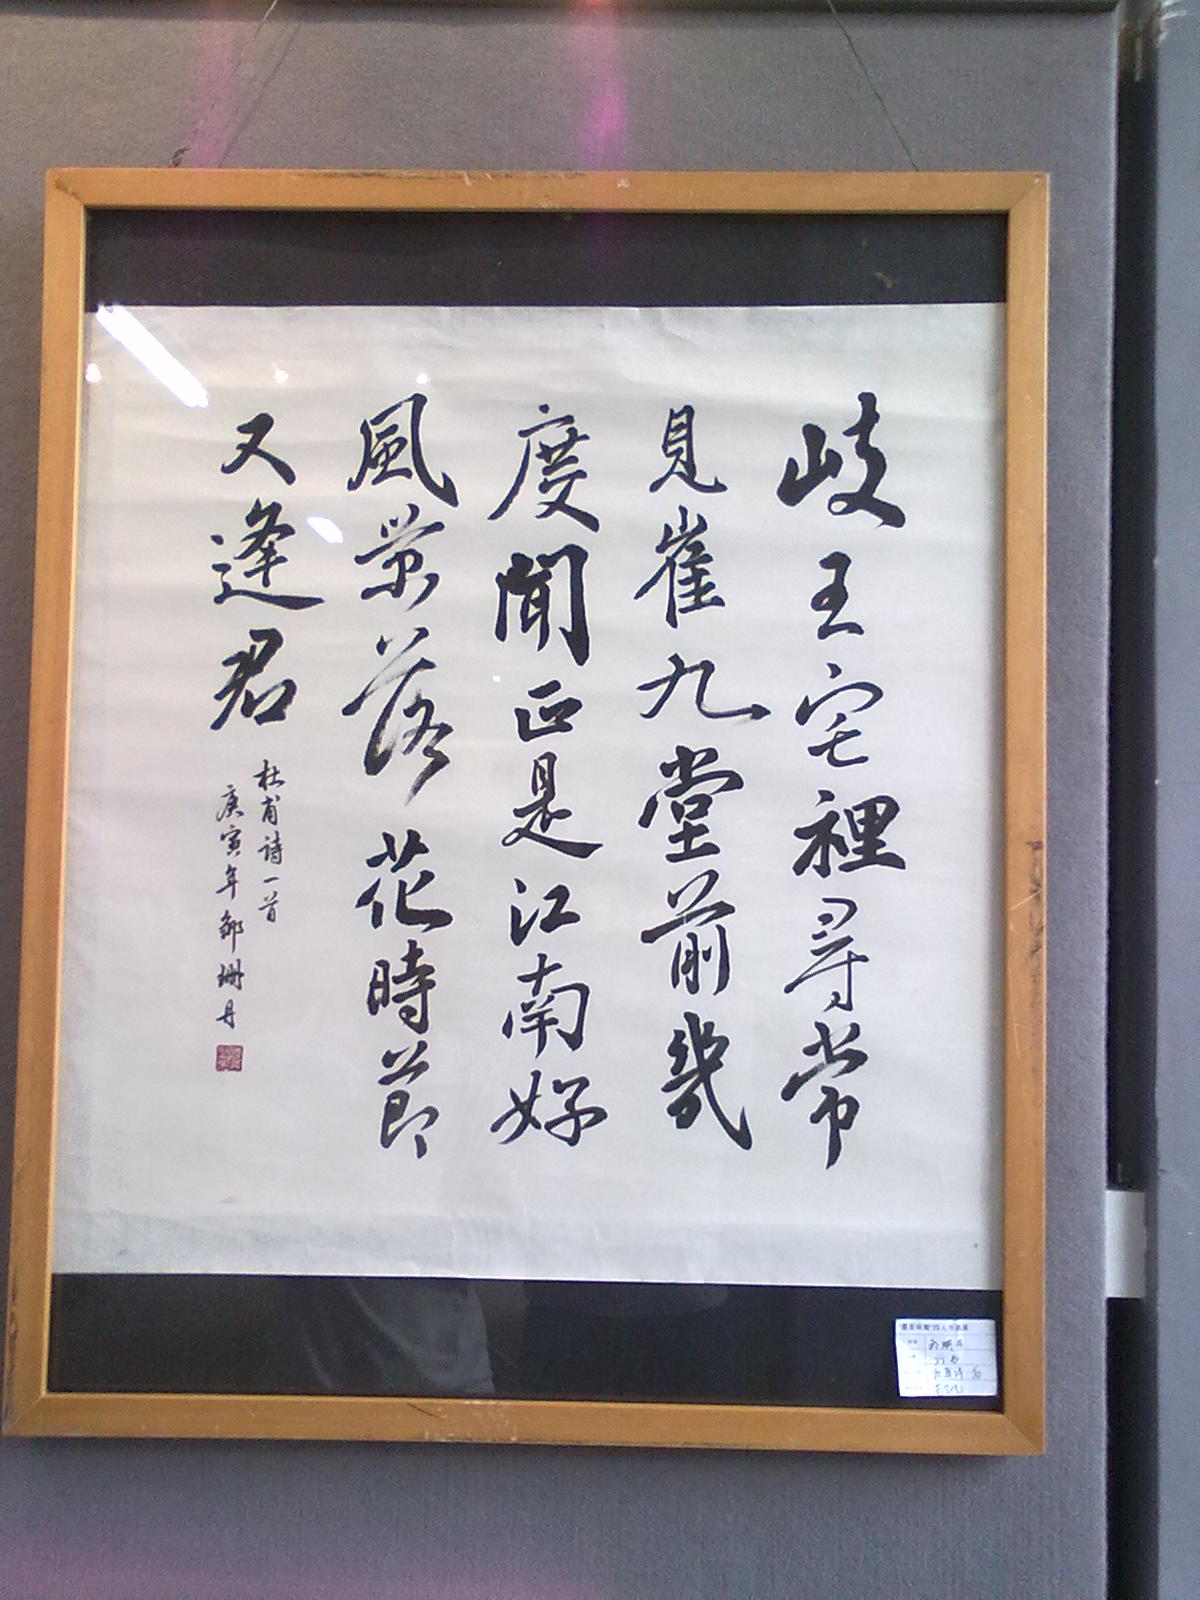 岐王宅裡尋常
見崔九堂前幾
度聞正是江南好
風景落花時節
又逢君
杜甫诗一首
庚寅年邹珊丹